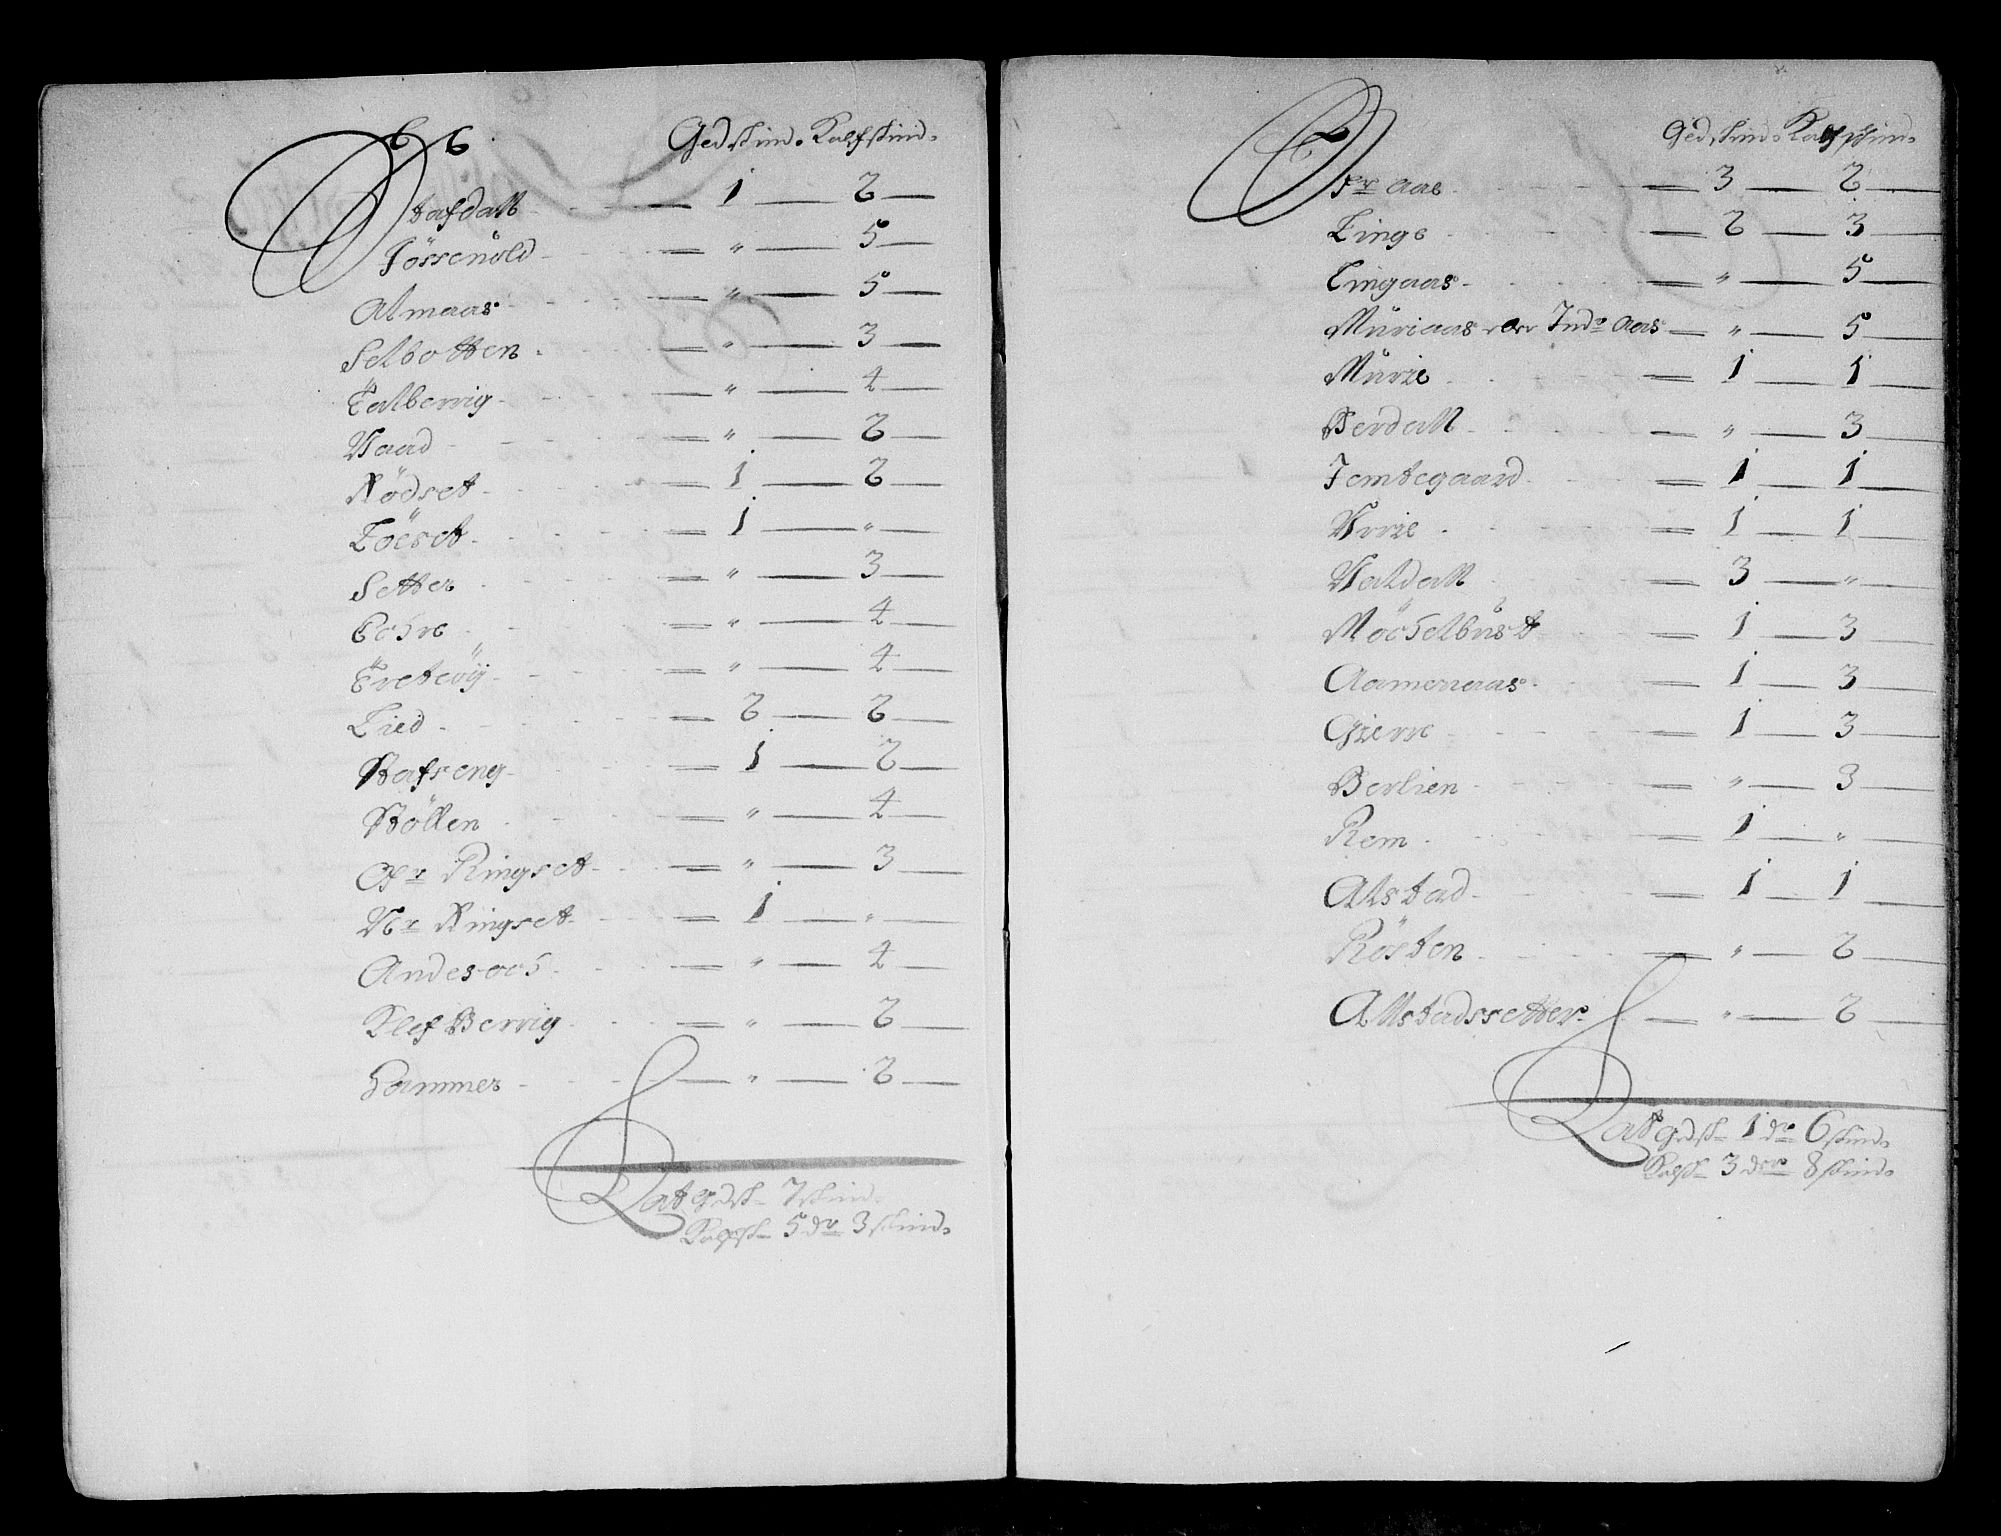 66. Gedskind. Kalfskind.
Stafdall 1 2
Jössenüld " 5
Almaas " 5
Selbotten " 3
Talbervig " 4
Vaad " 2
Nödset 1 2
Löeset 1 "
Setter " 3
" 4
" 4
Lied 2 2
Stafseng 1 2
Stöllen " 4
Ofr Ringset " 3
Nr Ringset 1 "
" 4
Klef Bervig " 2
Hammer " 2
Lat gedsk 7 skind
Kalfsk 5 dr 3 skind.
Gedskind. Kalfskind.
Yr Aas 3 2
Linge 2 3
Lingaas " 5
Müriaas Indr Aas " 5
Mürie 1 1
Berdall " 3
Jemtegaard 1 1
Vrie 1 1
Valdall 3 "
1 3
Aameraas 1 3
Gierre 1 3
Berlien " 3
Rem 1 "
Alstad 1 1
Rösten " 2
Allstadssetter " 2
Lat gedsk 1 dr 6 skind.
Kalfsk 3 der 8 skind.